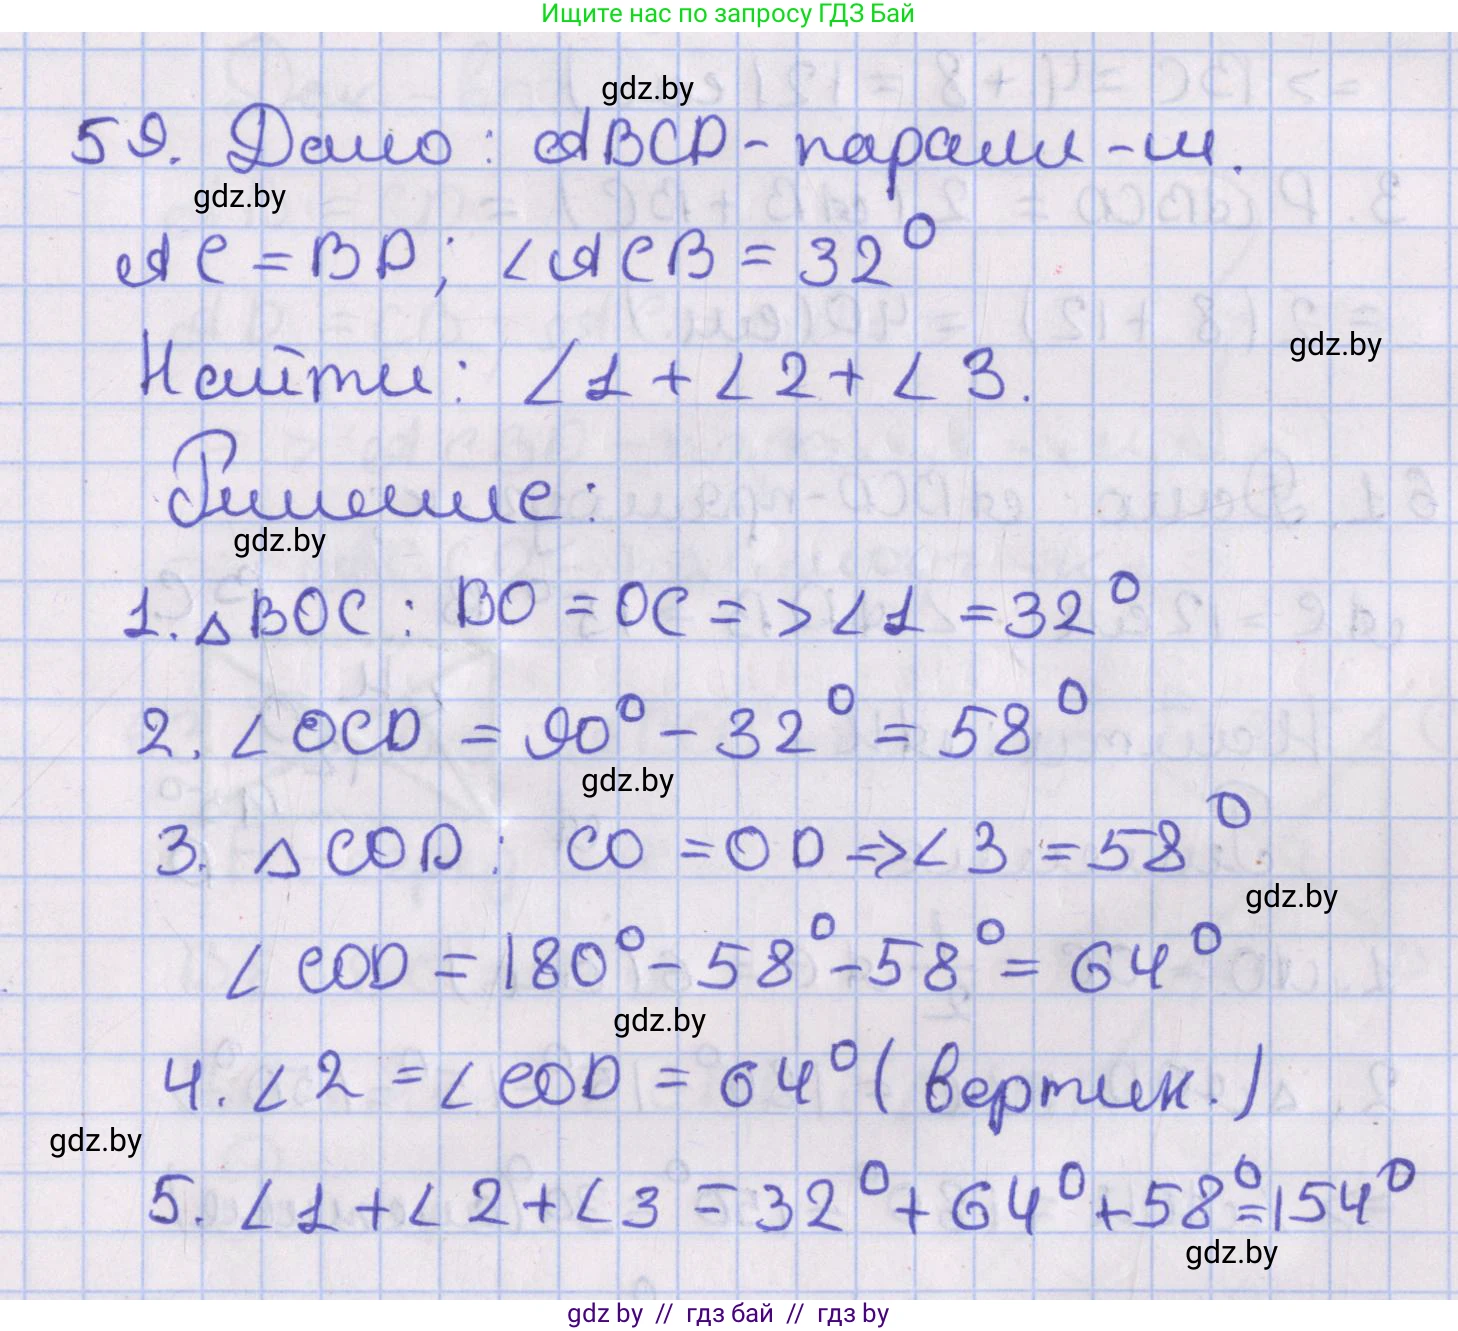 Ищите нас по запросу ГДЗ Бай
gdz.by
59. Дано: ABCD - паралл-м.
gdz.by
AC = BD; ∠ACB = 32°
gdz.by
Найти: ∠1 + ∠2 + ∠3.
Решение:
gdz.by
1. △BOC: BO = OC => ∠1 = 32°
2. ∠OCD = 90° - 32° = 58°
gdz.by
3. △COD: CO = OD => ∠3 = 58°
gdz.by
∠COD = 180° - 58° - 58° = 64°
gdz.by
4. ∠2 = ∠COD = 64° (вертик.)
gdz.by
5. ∠1 + ∠2 + ∠3 = 32° + 64° + 58° = 154°
gdz.by
gdz by // гдз бай // гдз by